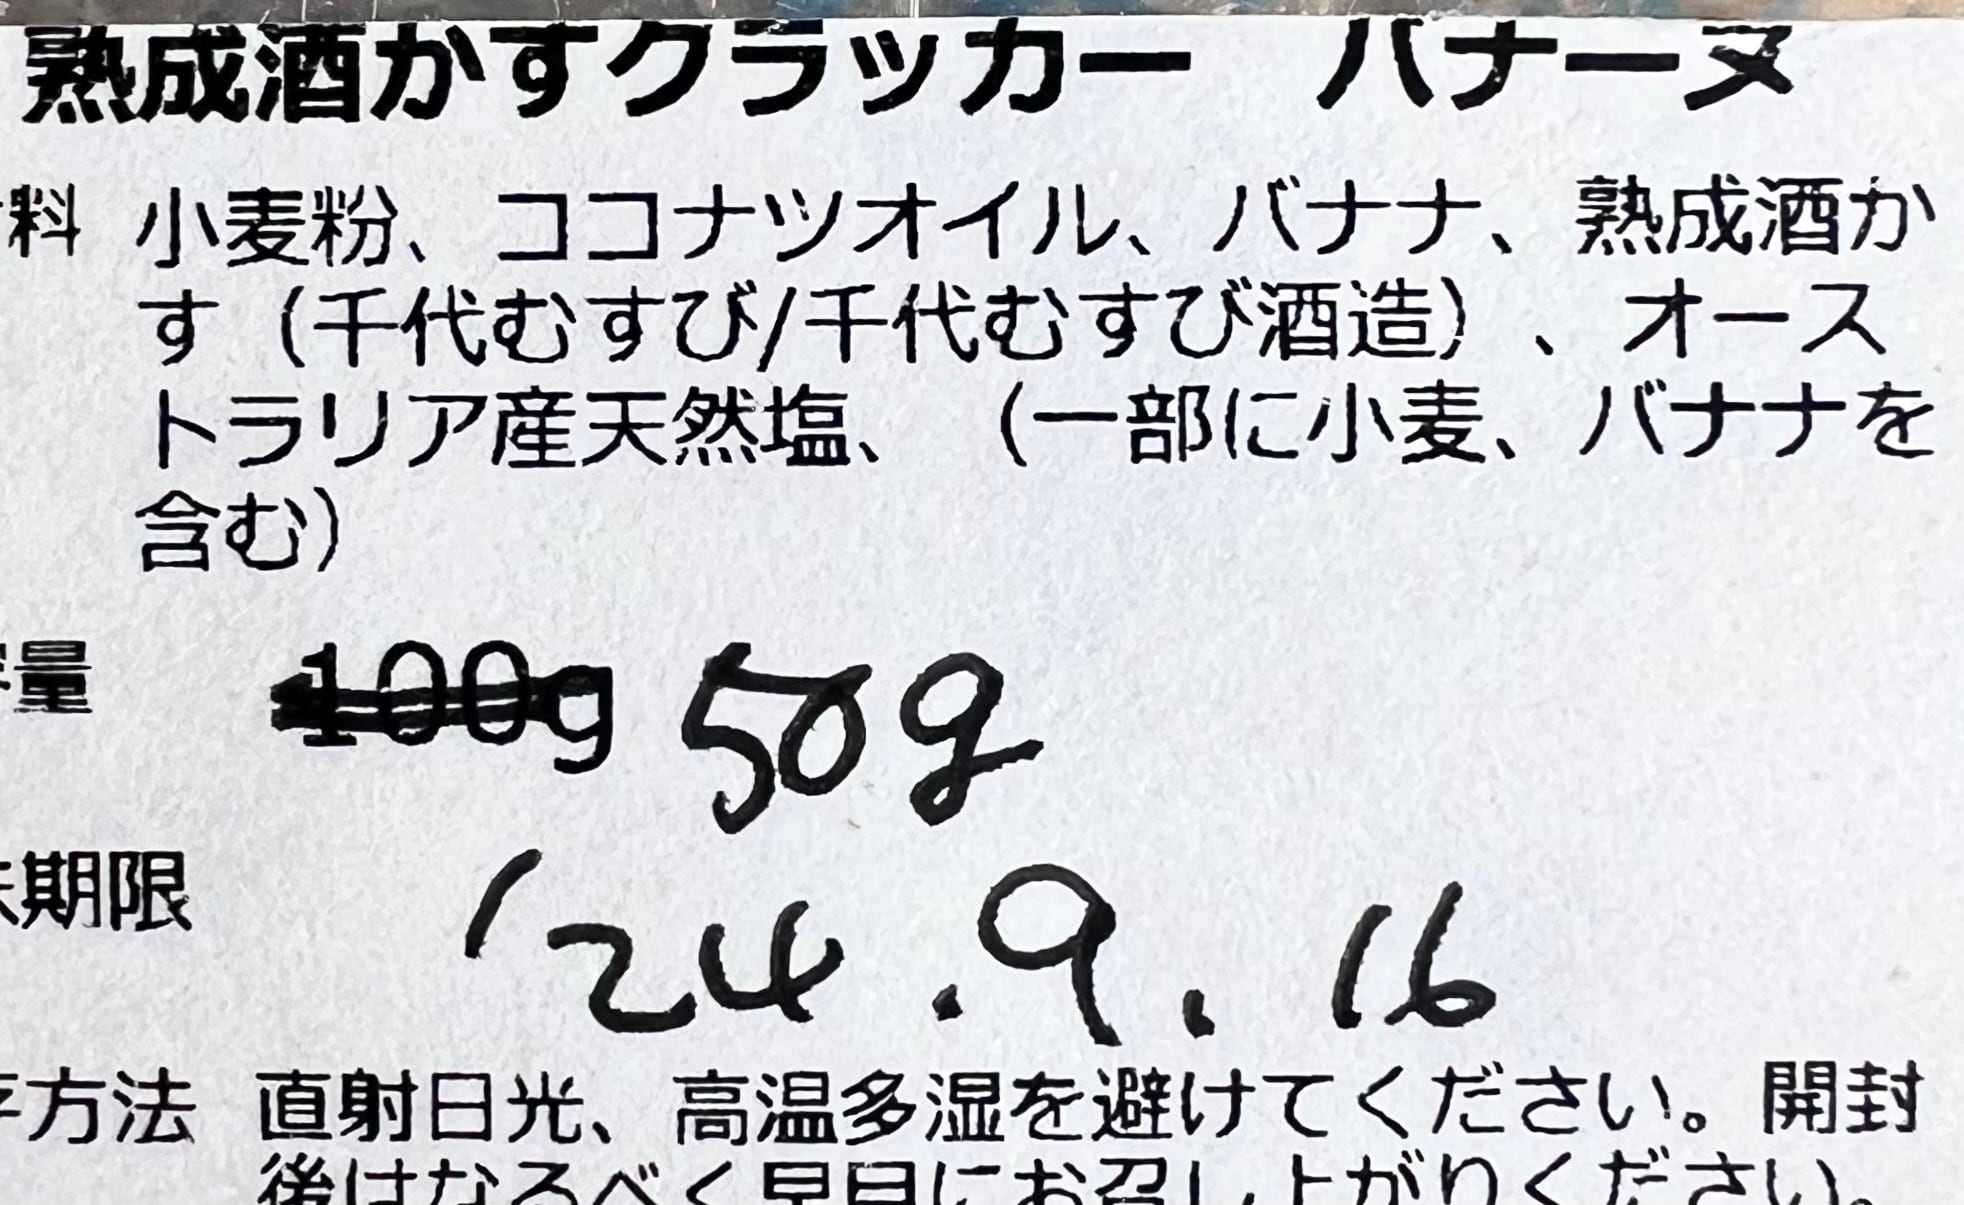 熟成酒かすクラッカー　バナーヌ
料 小麦粉、ココナツオイル、バナナ、熟成酒か
す（千代むすび/千代むすび酒造）、オース
トラリア産天然塩、（一部に小麦、バナナを
含む）
量 100g 50g
期限 '24.9.16
方法 直射日光、高温多湿を避けてください。開封
後はなるべく早目にお召し上がりください。